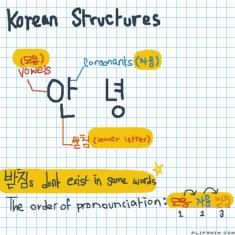 Korean Structures
(모음)
vowels
Consonants (자음)
안 녕
받침 (lower letter)
받침s dont exist in some words
The order of pronounciation: 모음 자음 받침
1 2 3
FLIPANIM.COM